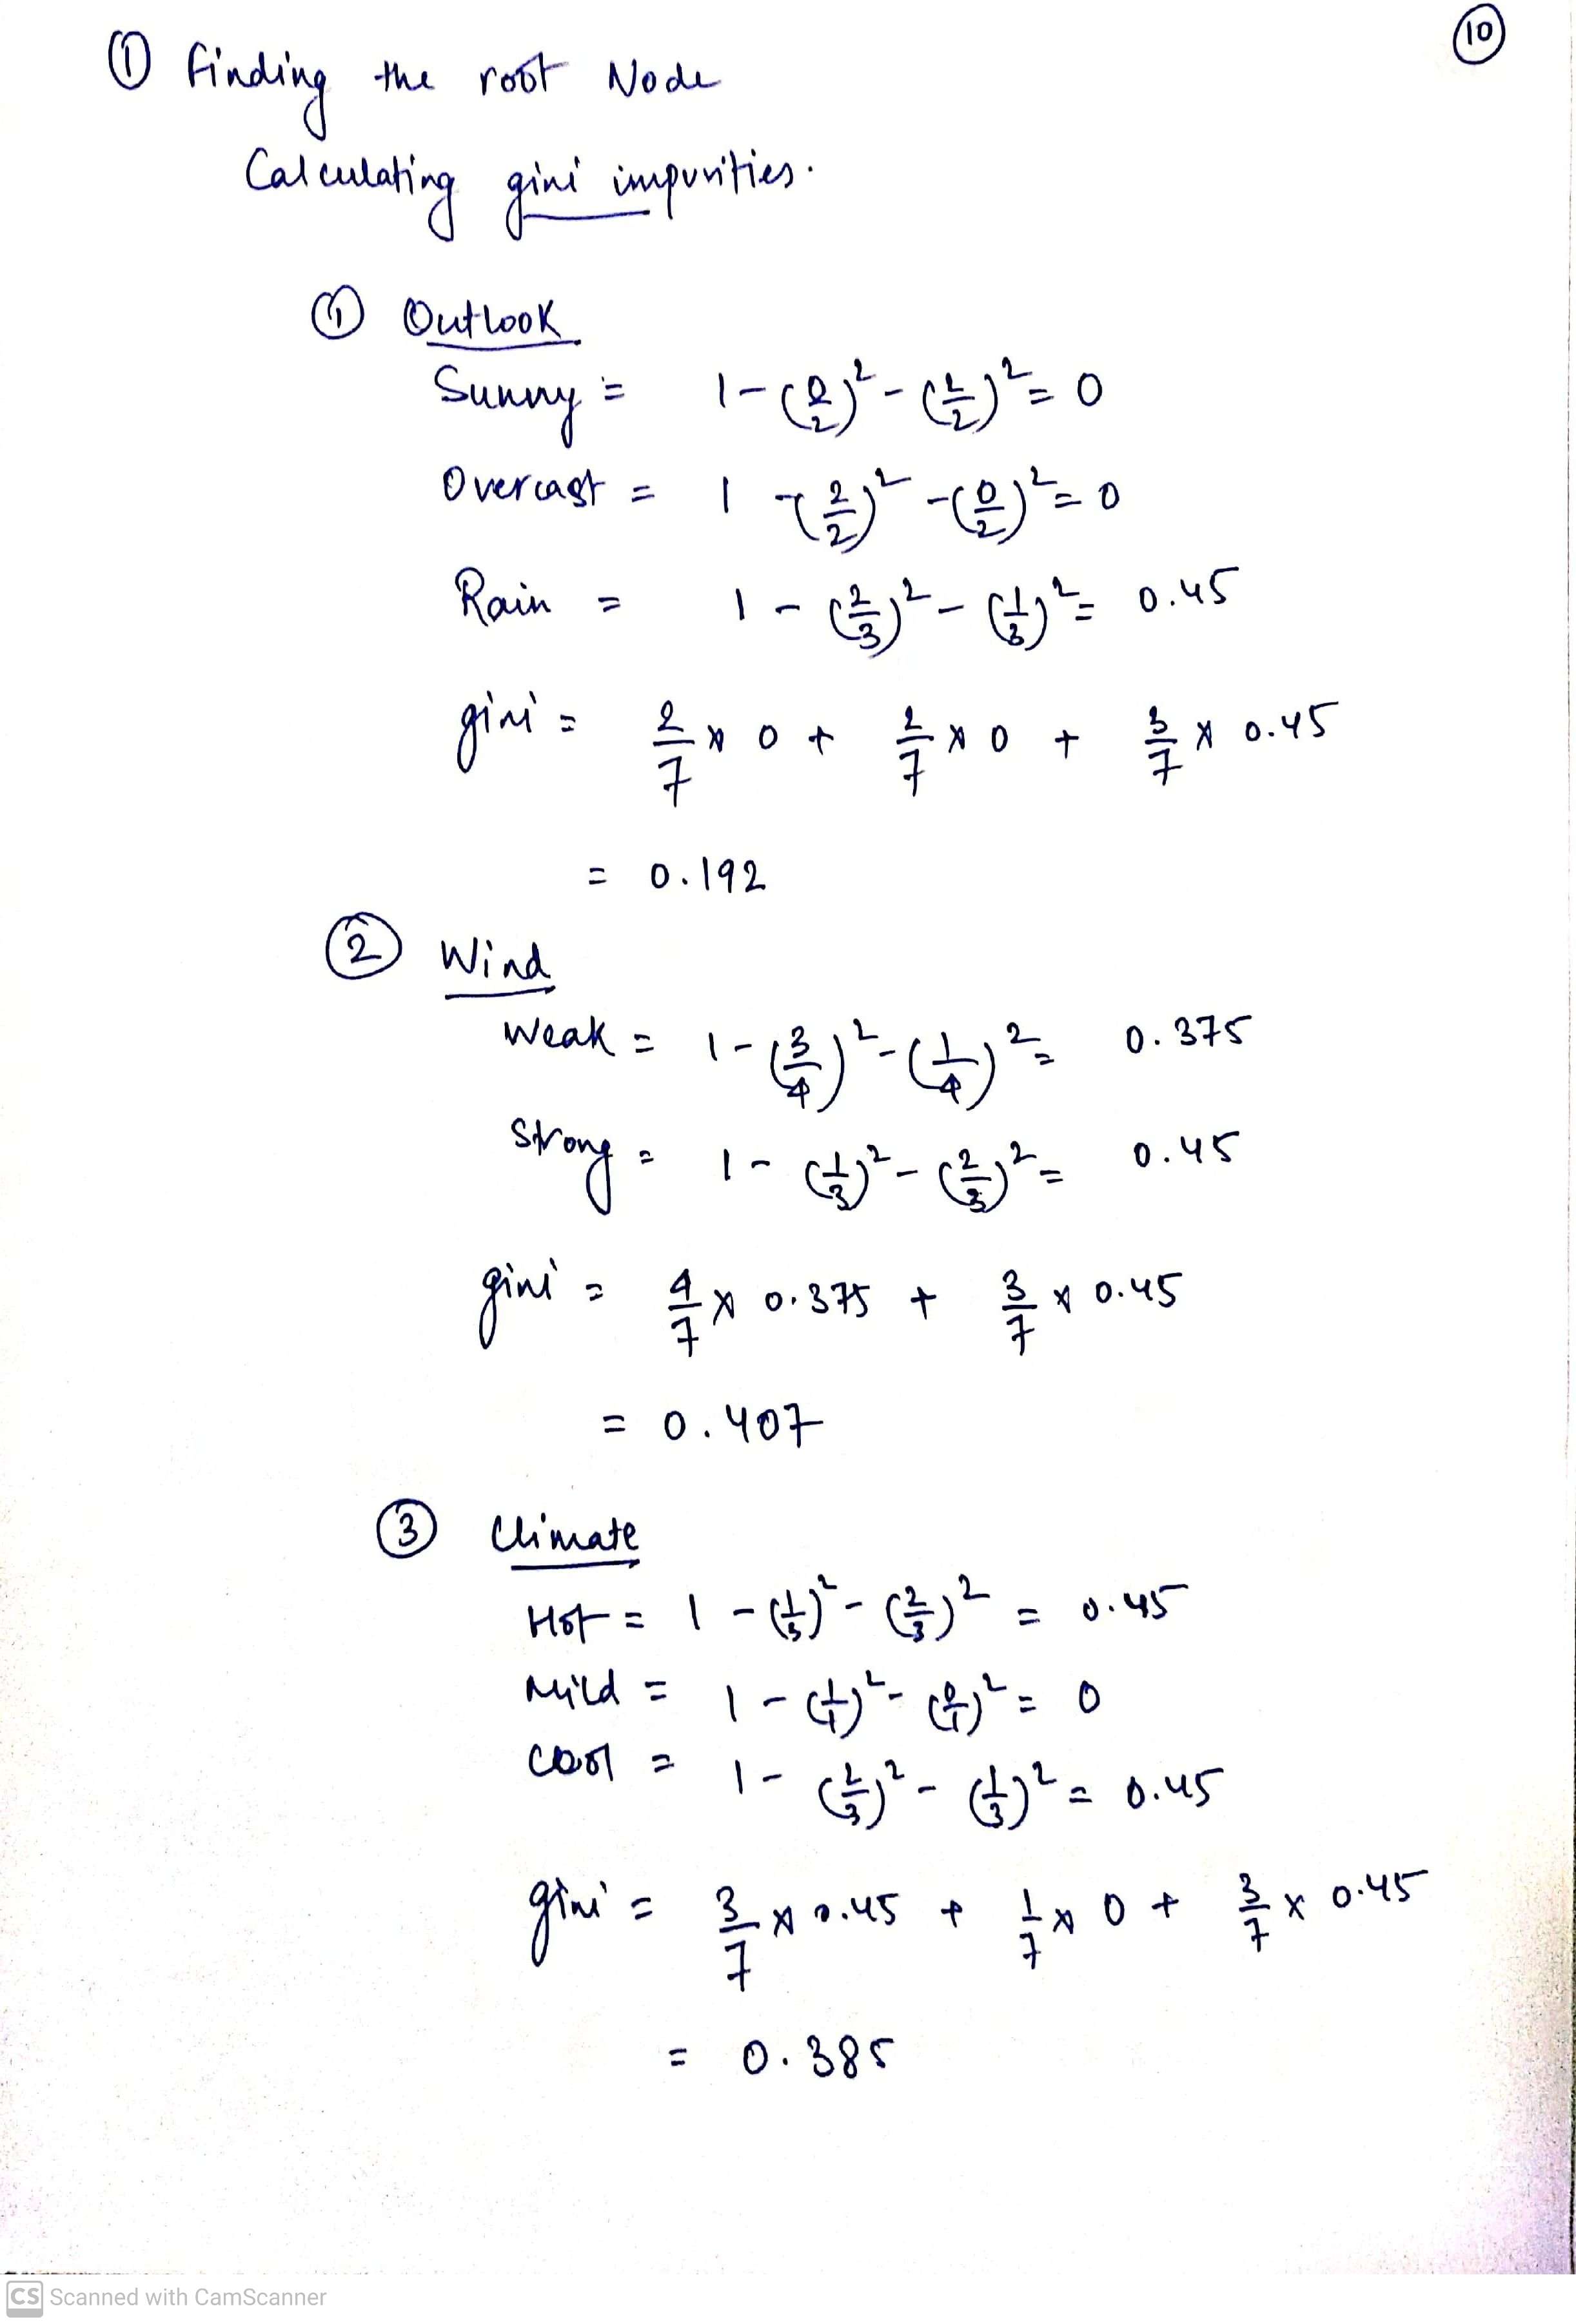 10
① Finding the root Node
Calculating gini impurities.
① Outlook
Sunny = 1-(0/2)² - (2/2)² = 0
Overcast = 1 - (2/2)² - (0/2)² = 0
Rain = 1 - (2/3)² - (1/3)² = 0.45
gini = 2/7 * 0 + 2/7 * 0 + 3/7 * 0.45
= 0.192
② Wind
Weak = 1-(3/4)² - (1/4)² = 0.375
Strong = 1 - (1/3)² - (2/3)² = 0.45
gini = 4/7 * 0.375 + 3/7 * 0.45
= 0.407
③ Climate
Hot = 1 - (1/3)² - (2/3)² = 0.45
Mild = 1 - (1/1)² - (0/1)² = 0
Cool = 1 - (2/3)² - (1/3)² = 0.45
gini = 3/7 * 0.45 + 1/7 * 0 + 3/7 × 0.45
= 0.385
CS Scanned with CamScanner